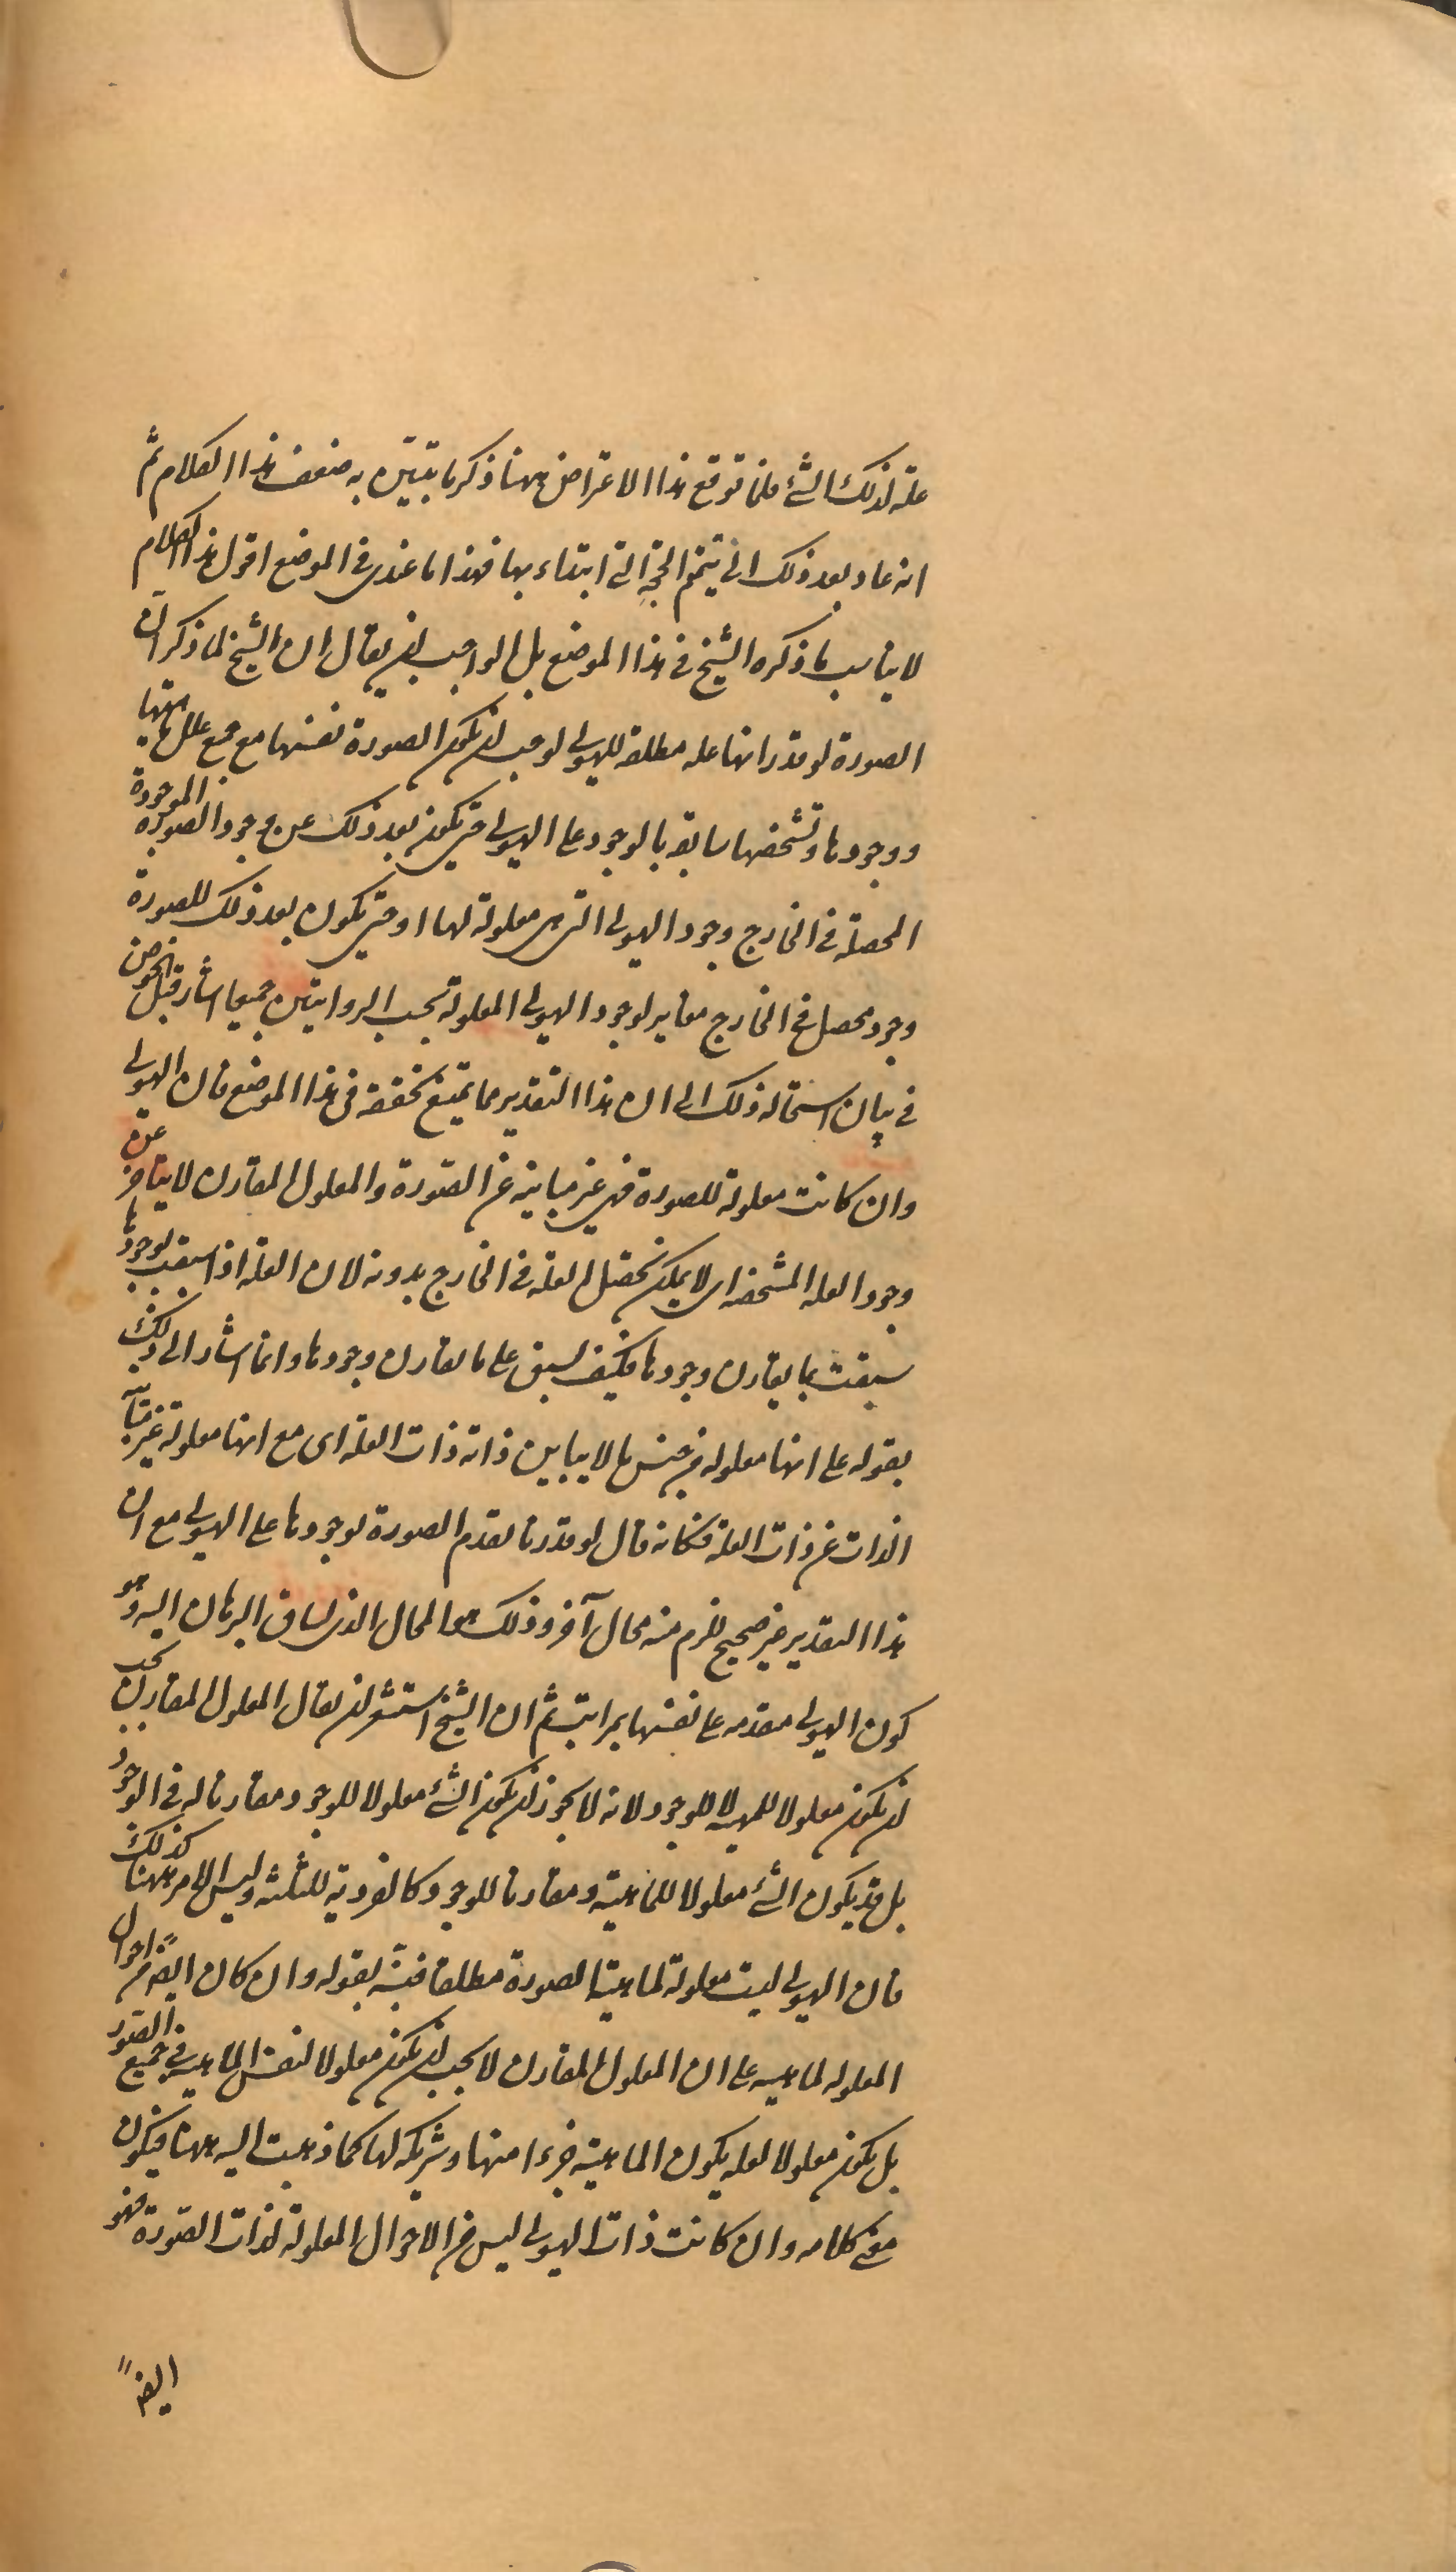 علة لذلك الشئ فلما توقع هذا الاعتراض ههنا ذكر ما يتبيّن به ضعف هذا الكلام ثم
انه عاد بعد ذلك الى تتميم الحجة التى ابتداء بها فهذا ما عندى فى الموضع اقول هذا الكلام
لا يناسب ما ذكره الشيخ فى هذا الموضع بل الواجب ان يقال ان الشيخ لما ذكر ان
الصورة لو قدر انها عله مطلقه للهيولى لوجب ان تكون الصورة نفسها مع جميع علل ماهيتها
ووجودها وتشخصها سابقه بالوجود على الهيولى حتى يكون بعد ذلك عن وجود الصورة الموجودة
المحصلة فى الخارج وجود الهيولى التى هى معلولة لها او حتى يكون بعد ذلك للصورة
وجود محصل فى الخارج مغاير لوجود الهيولى المعلولة بحسب الروايتين جميعا اشار قبل الخوض
فى بيان استحاله ذلك الى ان هذا التقدير مما يمتنع تحققه فى هذا الموضع فان الهيولى
وان كانت معلولة للصورة فهى غير مباينه عن الصورة والمعلول المقارن لا يتأخر عن
وجود العله المشخصه اى لا يمكن تحصل العله فى الخارج بدونه لان العلة اذا سبقت بوجودها
سبقت بما يقارن وجودها فكيف تسبق على ما يقارن وجودها وانما اشار الى ذلك
بقوله على انها معلوله من جنس ما لا يباين ذاته ذات العلة اى مع انها معلولة غير مباينة
الذات عن ذات العلة فكانه قال لو قدرنا تقدم الصورة بوجودها على الهيولى مع ان
هذا التقدير غير صحيح للزم منه محال آخر وذلك هو المحال الذى ساق البرهان اليه وهو
كون الهيولى مقدمه على نفسها بمراتب ثم ان الشيخ استشعر ان يقال المعلول المقارن يجب
ان يكون معلولا للمهيه لا للوجود لانه لا يجوز ان يكون الشئ معلولا للوجود ومقارنا له فى الوجود
بل قد يكون الشئ معلولا للماهية ومقارنا للوجود كالفردية للثلثة وليس الامر ههنا كذلك
فان الهيولى ليست معلولة لماهية الصورة مطلقا فنبه بقوله وان كان ايضا من احوال
المعلوله لماهيته على ان المعلول المقارن لا يجب ان يكون معلولا لنفس الماهية فى جميع الصور
بل يكون معلولا لعله يكون الماهية جزءا منها وشريكه لها كما ذهبت اليه ههنا فيكون
معنى كلامه وان كانت ذات الهيولى ليس من الاحوال المعلولة لذات الصورة فهو
ايضا